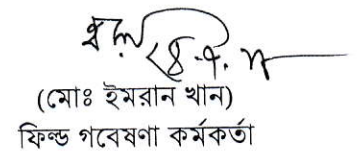 (মোঃ ইমরান খান)
ফিল্ড গবেষণা কর্মকর্তা